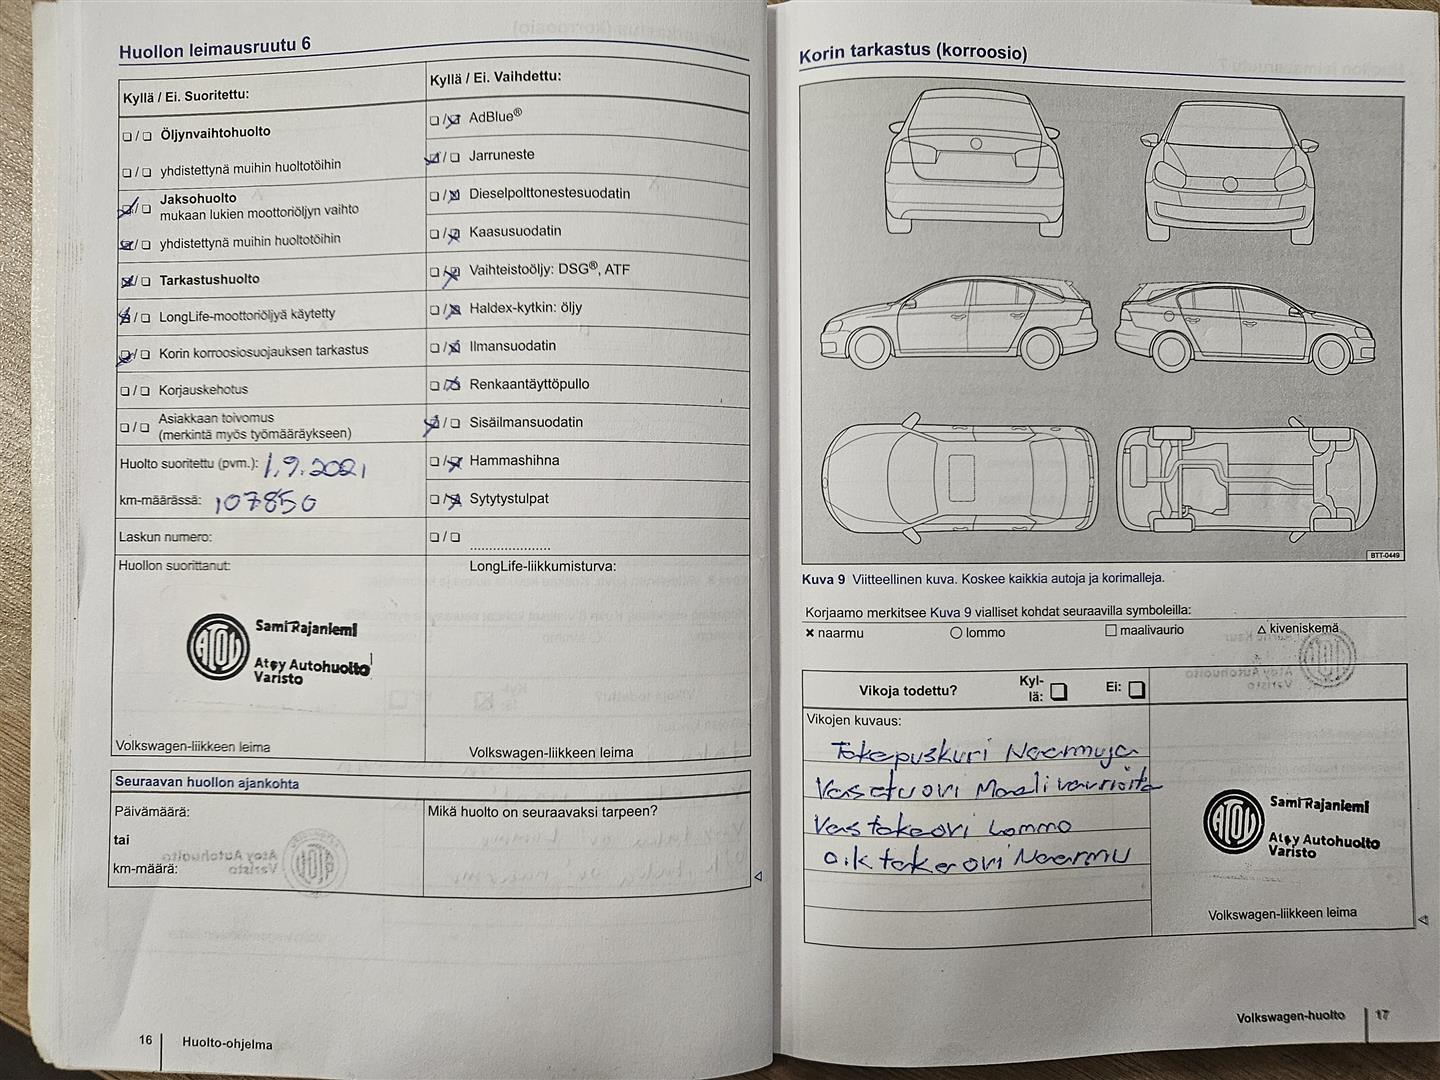 Huollon leimausruutu 6
Kyllä / Ei. Suoritettu:
❏ / ❏ Öljynvaihtohuolto
❏ / ❏ yhdistettynä muihin huoltotöihin
❏ / ❏ Jaksohuolto
mukaan lukien moottoriöljyn vaihto
❏ / ❏ yhdistettynä muihin huoltotöihin
❏ / ❏ Tarkastushuolto
❏ / ❏ LongLife-moottoriöljyä käytetty
❏ / ❏ Korin korroosiosuojauksen tarkastus
❏ / ❏ Korjauskehotus
❏ / ❏ Asiakkaan toivomus
(merkintä myös työmääräykseen)
Huolto suoritettu (pvm.): 1.9.2021
km-määrässä: 107850
Laskun numero:
Huollon suorittanut:
ATOY
Sami Rajaniemi
Atoy Autohuolto
Varisto
Volkswagen-liikkeen leima
Kyllä / Ei. Vaihdettu:
❏ / ❏ AdBlue®
❏ / ❏ Jarruneste
❏ / ❏ Dieselpolttonestesuodatin
❏ / ❏ Kaasusuodatin
❏ / ❏ Vaihteistoöljy: DSG®, ATF
❏ / ❏ Haldex-kytkin: öljy
❏ / ❏ Ilmansuodatin
❏ / ❏ Renkaantäyttöpullo
❏ / ❏ Sisäilmansuodatin
❏ / ❏ Hammashihna
❏ / ❏ Sytytystulpat
❏ / ❏ ......................
LongLife-liikkumisturva:
Volkswagen-liikkeen leima
Seuraavan huollon ajankohta
Päivämäärä:
tai
km-määrä:
Mikä huolto on seuraavaksi tarpeen?
16 Huolto-ohjelma
Korin tarkastus (korroosio)
BTT-0449
Kuva 9 Viitteellinen kuva. Koskee kaikkia autoja ja korimalleja.
Korjaamo merkitsee Kuva 9 vialliset kohdat seuraavilla symboleilla:
× naarmu ○ lommo □ maalivaurio △ kiveniskemä
Vikoja todettu? Kyl-
lä: ❏ Ei: ❏
Vikojen kuvaus:
Takapuskuri Naarmuja
Vas etuovi Maalivaurioita
Vas takaovi Lommo
Oik takaovi Naarmu
ATOY
Sami Rajaniemi
Atoy Autohuolto
Varisto
Volkswagen-liikkeen leima
Volkswagen-huolto 17